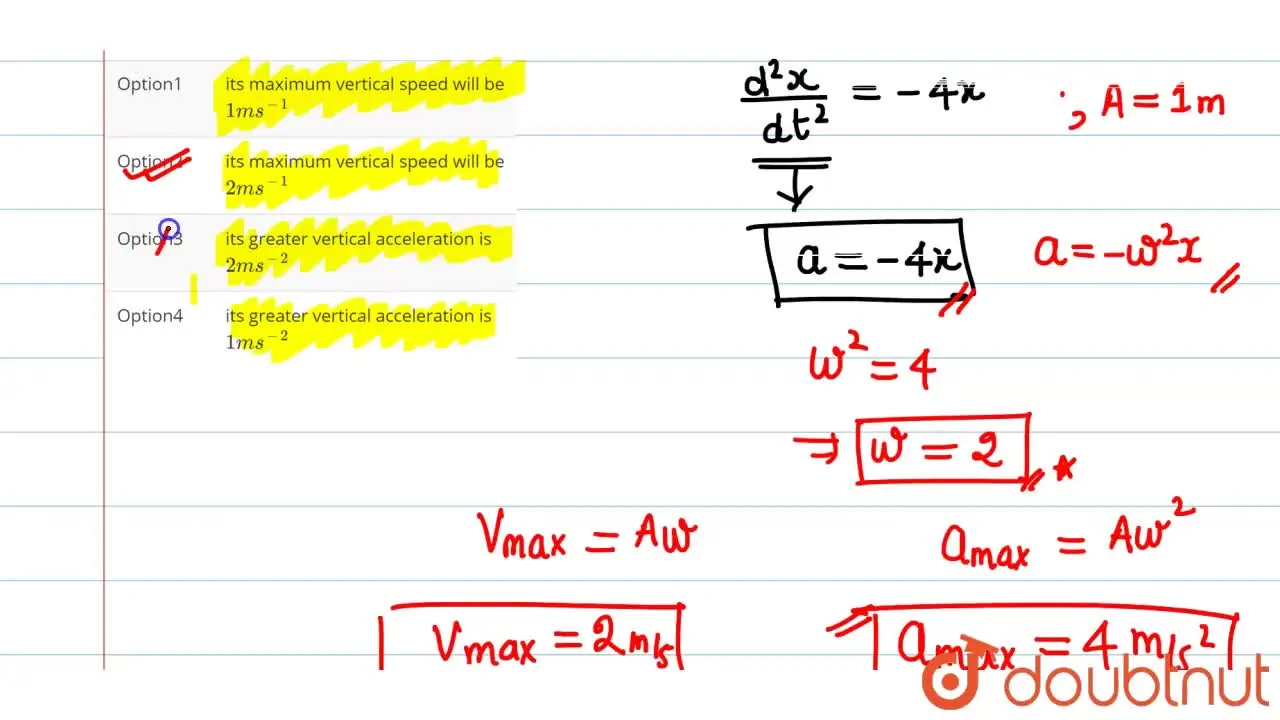 Option1 its maximum vertical speed will be
1ms⁻¹
Option2 its maximum vertical speed will be
2ms⁻¹
Option3 its greater vertical acceleration is
2ms⁻²
Option4 its greater vertical acceleration is
1ms⁻²
d²x/dt² = -4x ; A = 1m
a = -4x a = -w²x
w² = 4
⇒ w = 2
Vmax = Aw amax = Aw²
Vmax = 2m/s amax = 4 m/s²
doubtnut